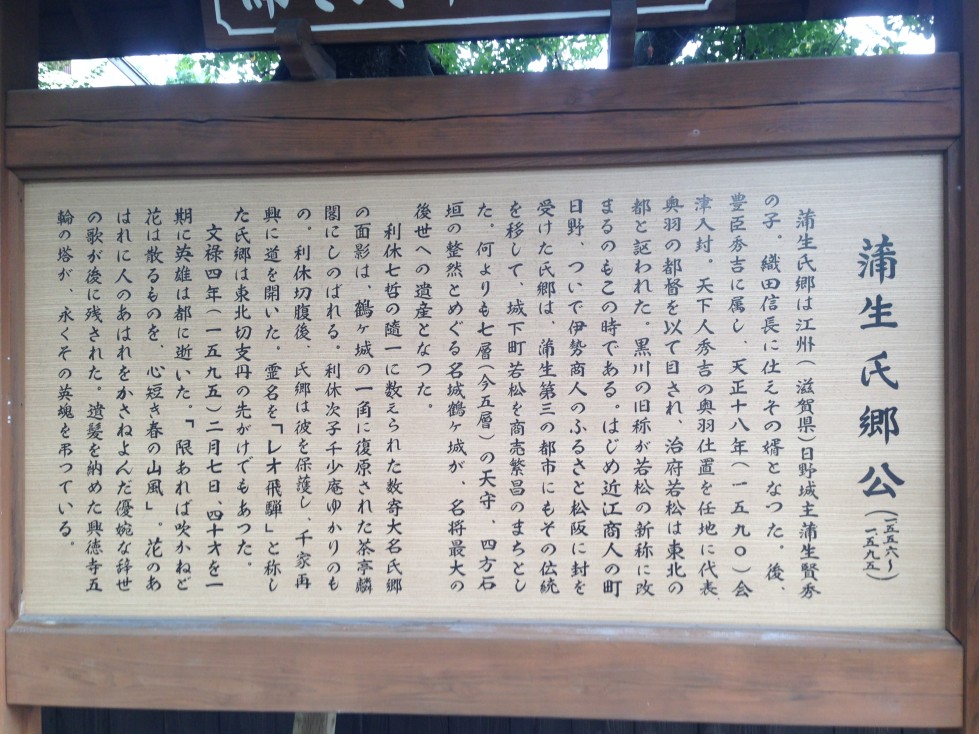 蒲生氏郷公(一五五六〜一五九五)
蒲生氏郷は江州(滋賀県)日野城主蒲生賢秀
の子。織田信長に仕えその婿となつた。後、
豊臣秀吉に属し、天正十八年(一五九〇)会
津入封。天下人秀吉の奥羽仕置を任地に代表、
奥羽の都督を以て目され、治府若松は東北の
都と謳われた。黒川の旧称が若松の新称に改
まるのもこの時である。はじめ近江商人の町
日野、ついで伊勢商人のふるさと松阪に封を
受けた氏郷は、蒲生第三の都市にもその伝統
を移して、城下町若松を商売繁昌のまちとし
た。何よりも七層(今五層)の天守、四方石
垣の整然とめぐる名城鶴ヶ城が、名将最大の
後世への遺産となつた。
利休七哲の随一に数えられた数寄大名氏郷
の面影は、鶴ヶ城の一角に復原された茶亭麟
閣にしのばれる。利休次子千少庵ゆかりのも
の。利休切腹後、氏郷は彼を保護し、千家再
興に道を開いた。霊名を「レオ飛騨」と称し
た氏郷は東北切支丹の先がけでもあつた。
文禄四年(一五九五)二月七日、四十才を一
期に英雄は都に逝いた。「限あれば吹かねど
花は散るものを、心短き春の山風」。花のあ
はれに人のあはれをかさねよんだ優婉な辞世
の歌が後に残された。遺髪を納めた興徳寺五
輪の塔が、永くその英魂を弔つている。